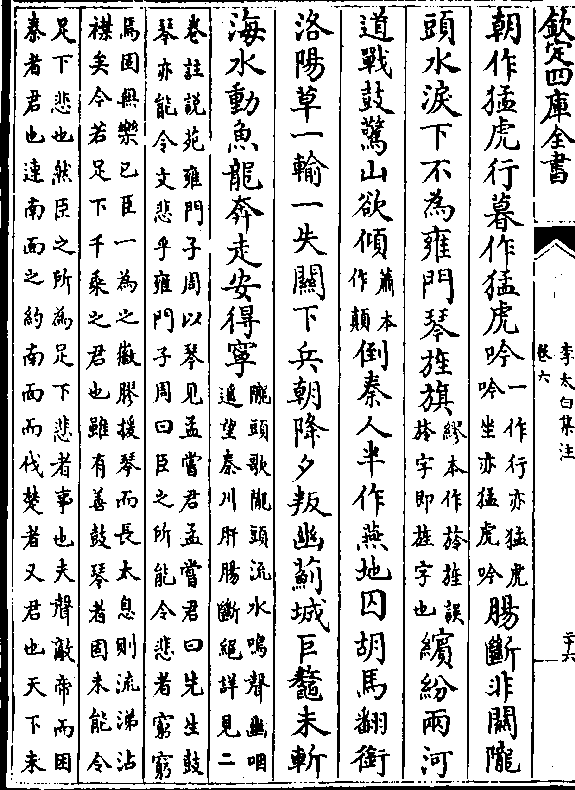 欽定四庫全書
李太白集注
卷六
二十六
朝作猛虎行暮作猛虎吟一作行亦猛虎吟坐亦猛虎吟腸斷非關隴
頭水淚下不為雍門琴旌旗繆本作旍旌誤旍字即旌字也繽紛兩河
道戰鼓驚山欲傾蕭本作顛倒秦人半作燕地囚胡馬翻銜
洛陽草一輸一失關下兵朝降夕叛幽薊城巨鼇未斬
海水動魚龍奔走安得寧隴頭歌隴頭流水鳴聲幽咽遥望秦川肝腸斷絕詳見二
卷註說苑雍門子周以琴見孟嘗君孟嘗君曰先生鼓
琴亦能令文悲乎雍門子周曰臣之所能令悲者窮窮
焉固無樂已臣一為之徽膠援琴而長太息則流涕沾
襟矣今若足下千乘之君也雖有善鼓琴者固未能令
足下悲也然臣之所為足下悲者事也夫聲敵帝而困
秦者君也連南面之約南面而伐楚者又君也天下未